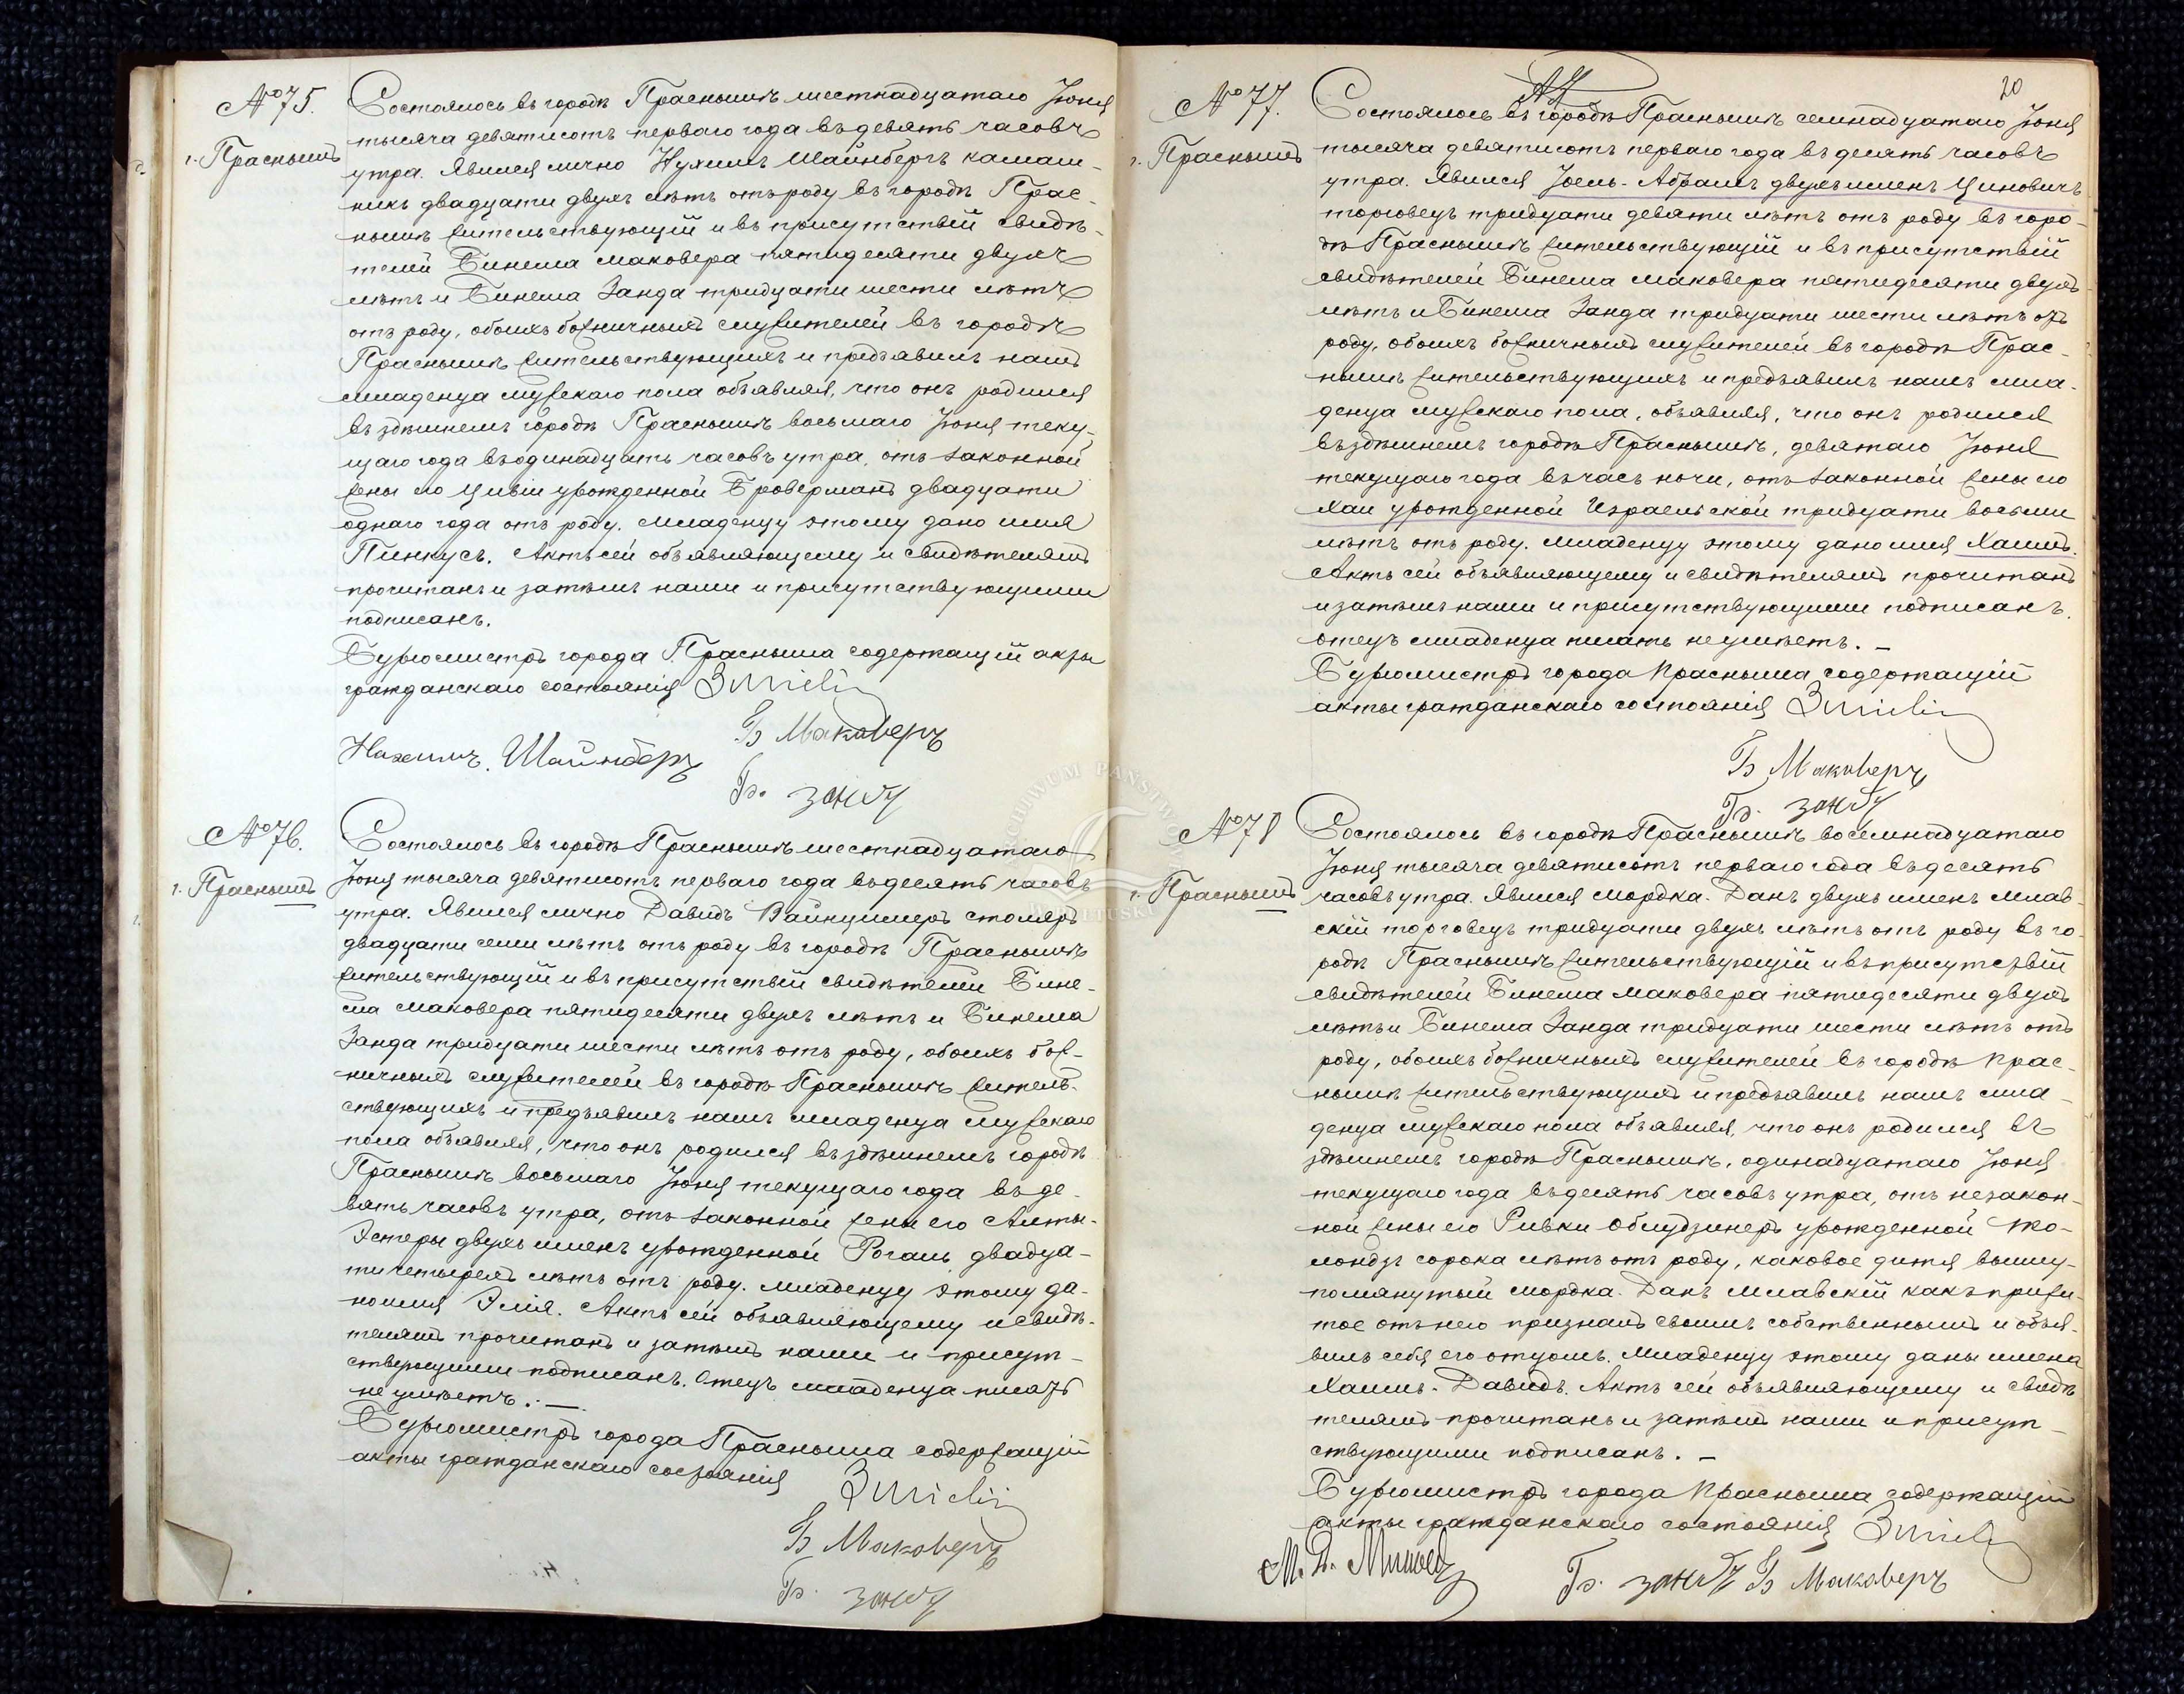 № 75.
г. Праснышъ
Состоялось въ городѣ Праснышѣ шестнадцатаго Іюня
тысяча девятисотъ перваго года въ девять часовъ
утра. Явился лично Нухимъ Шайнбергъ камаш-
никъ двадцати двухъ лѣтъ отъ роду въ городѣ Прас-
нышѣ жительствующій и въ присутствіи свидѣ-
телей Бинема Маковера пятидесяти двухъ
лѣтъ и Бинема Занда тридцати шести лѣтъ
отъ роду, обоихъ божничныхъ служителей въ городѣ
Праснышѣ жительствующихъ и предъявилъ намъ
младенца мужскаго пола объявляя, что онъ родился
въ здѣшнемъ городѣ Праснышѣ восьмаго Іюня теку-
щаго года въ одинадцать часовъ утра, отъ законной
жены его Цивіи урожденной Броверманъ двадцати
однаго года отъ роду. Младенцу этому дано имя
Пинкусъ. Актъ сей объявляющему и свидѣтелямъ
прочитанъ и затѣмъ нами и присутствующими
подписанъ.
Бургомистръ города Прасныша содержащій акты
гражданскаго состоянія
Б Маковеръ
Нахимъ. Шайнберъ
Б. Зандъ
№ 76.
г. Праснышъ
Состоялось въ городѣ Праснышѣ шестнадцатаго
Іюня тысяча девятисотъ перваго года въ десять часовъ
утра. Явился лично Давидъ Вайнцимеръ столяръ
двадцати семи лѣтъ отъ роду въ городѣ Праснышѣ
жительствующій и въ присутствіи свидѣтелей Бине-
ма Маковера пятидесяти двухъ лѣтъ и Бинема
Занда тридцати шести лѣтъ отъ роду, обоихъ бож-
ничныхъ служителей въ городѣ Праснышѣ житель-
ствующихъ и предъявилъ намъ младенца мужскаго
пола объявляя, что онъ родился въ здѣшнемъ городѣ
Праснышѣ восьмаго Іюня текущаго года въ де-
вять часовъ утра, отъ законной жены его Алты-
Эстеры двухъ именъ урожденной Рогаль двадца-
ти четырехъ лѣтъ отъ роду. Младенцу этому да-
но имя Элія. Актъ сей объявляющему и свидѣ-
телямъ прочитанъ и затѣмъ нами и присут-
ствующими подписанъ. Отецъ младенца писать
не умѣетъ. —
Бургомистръ города Прасныша содержащій
акты гражданскаго состоянія
Б Маковеръ
Б. Зандъ
20
№ 77.
г. Праснышъ
Состоялось въ городѣ Праснышѣ семнадцатаго Іюня
тысяча девятисотъ перваго года въ десять часовъ
утра. Явился Іоель-Абрамъ двухъ именъ Циновичъ
торговецъ тридцати девяти лѣтъ отъ роду въ горо-
дѣ Праснышѣ жительствующій и въ присутствіи
свидѣтелей Бинема Маковера пятидесяти двухъ
лѣтъ и Бинема Занда тридцати шести лѣтъ отъ
роду, обоихъ божничныхъ служителей въ городѣ Прас-
нышѣ жительствующихъ и предъявилъ намъ мла-
денца мужскаго пола, объявляя, что онъ родился
въ здѣшнемъ городѣ Праснышѣ, девятаго Іюня
текущаго года въ часъ ночи, отъ законной жены его
Хаи урожденной Израельской тридцати восьми
лѣтъ отъ роду. Младенцу этому дано имя Хаимъ.
Актъ сей объявляющему и свидѣтелямъ прочитанъ
и затѣмъ нами и присутствующими подписанъ.
Отецъ младенца писать не умѣетъ. —
Бургомистръ города Прасныша содержащій
акты гражданскаго состоянія
Б Маковеръ
Б. Зандъ
№ 78
г. Праснышъ
Состоялось въ городѣ Праснышѣ восемнадцатаго
Іюня тысяча девятисотъ перваго года въ десять
часовъ утра. Явился Мордка-Данъ двухъ именъ Млав-
скій торговецъ тридцати двухъ лѣтъ отъ роду въ го-
родѣ Праснышѣ жительствующій и въ присутствіи
свидѣтелей Бинема Маковера пятидесяти двухъ
лѣтъ и Бинема Занда тридцати шести лѣтъ отъ
роду, обоихъ божничныхъ служителей въ городѣ Прас-
нышѣ жительствующихъ и предъявилъ намъ мла-
денца мужскаго пола объявляя, что онъ родился въ
здѣшнемъ городѣ Праснышѣ, одинадцатаго Іюня
текущаго года въ десять часовъ утра, отъ незакон-
ной жены его Ривки Облудзинеръ урожденной
сорока лѣтъ отъ роду, каковое дитя вышеу-
помянутый Мордка-Данъ Млавскій какъ прижи-
тое отъ него призналъ своимъ собственнымъ и объя-
вилъ себя его отцомъ. Младенцу этому даны имена
Хаимъ-Давидъ. Актъ сей объявляющему и свидѣ-
телямъ прочитанъ и затѣмъ нами и присут-
ствующими подписанъ. —
Бургомистръ города Прасныша содержащій
акты гражданскаго состоянія
М. Д.
Б. Зандъ Б Маковеръ